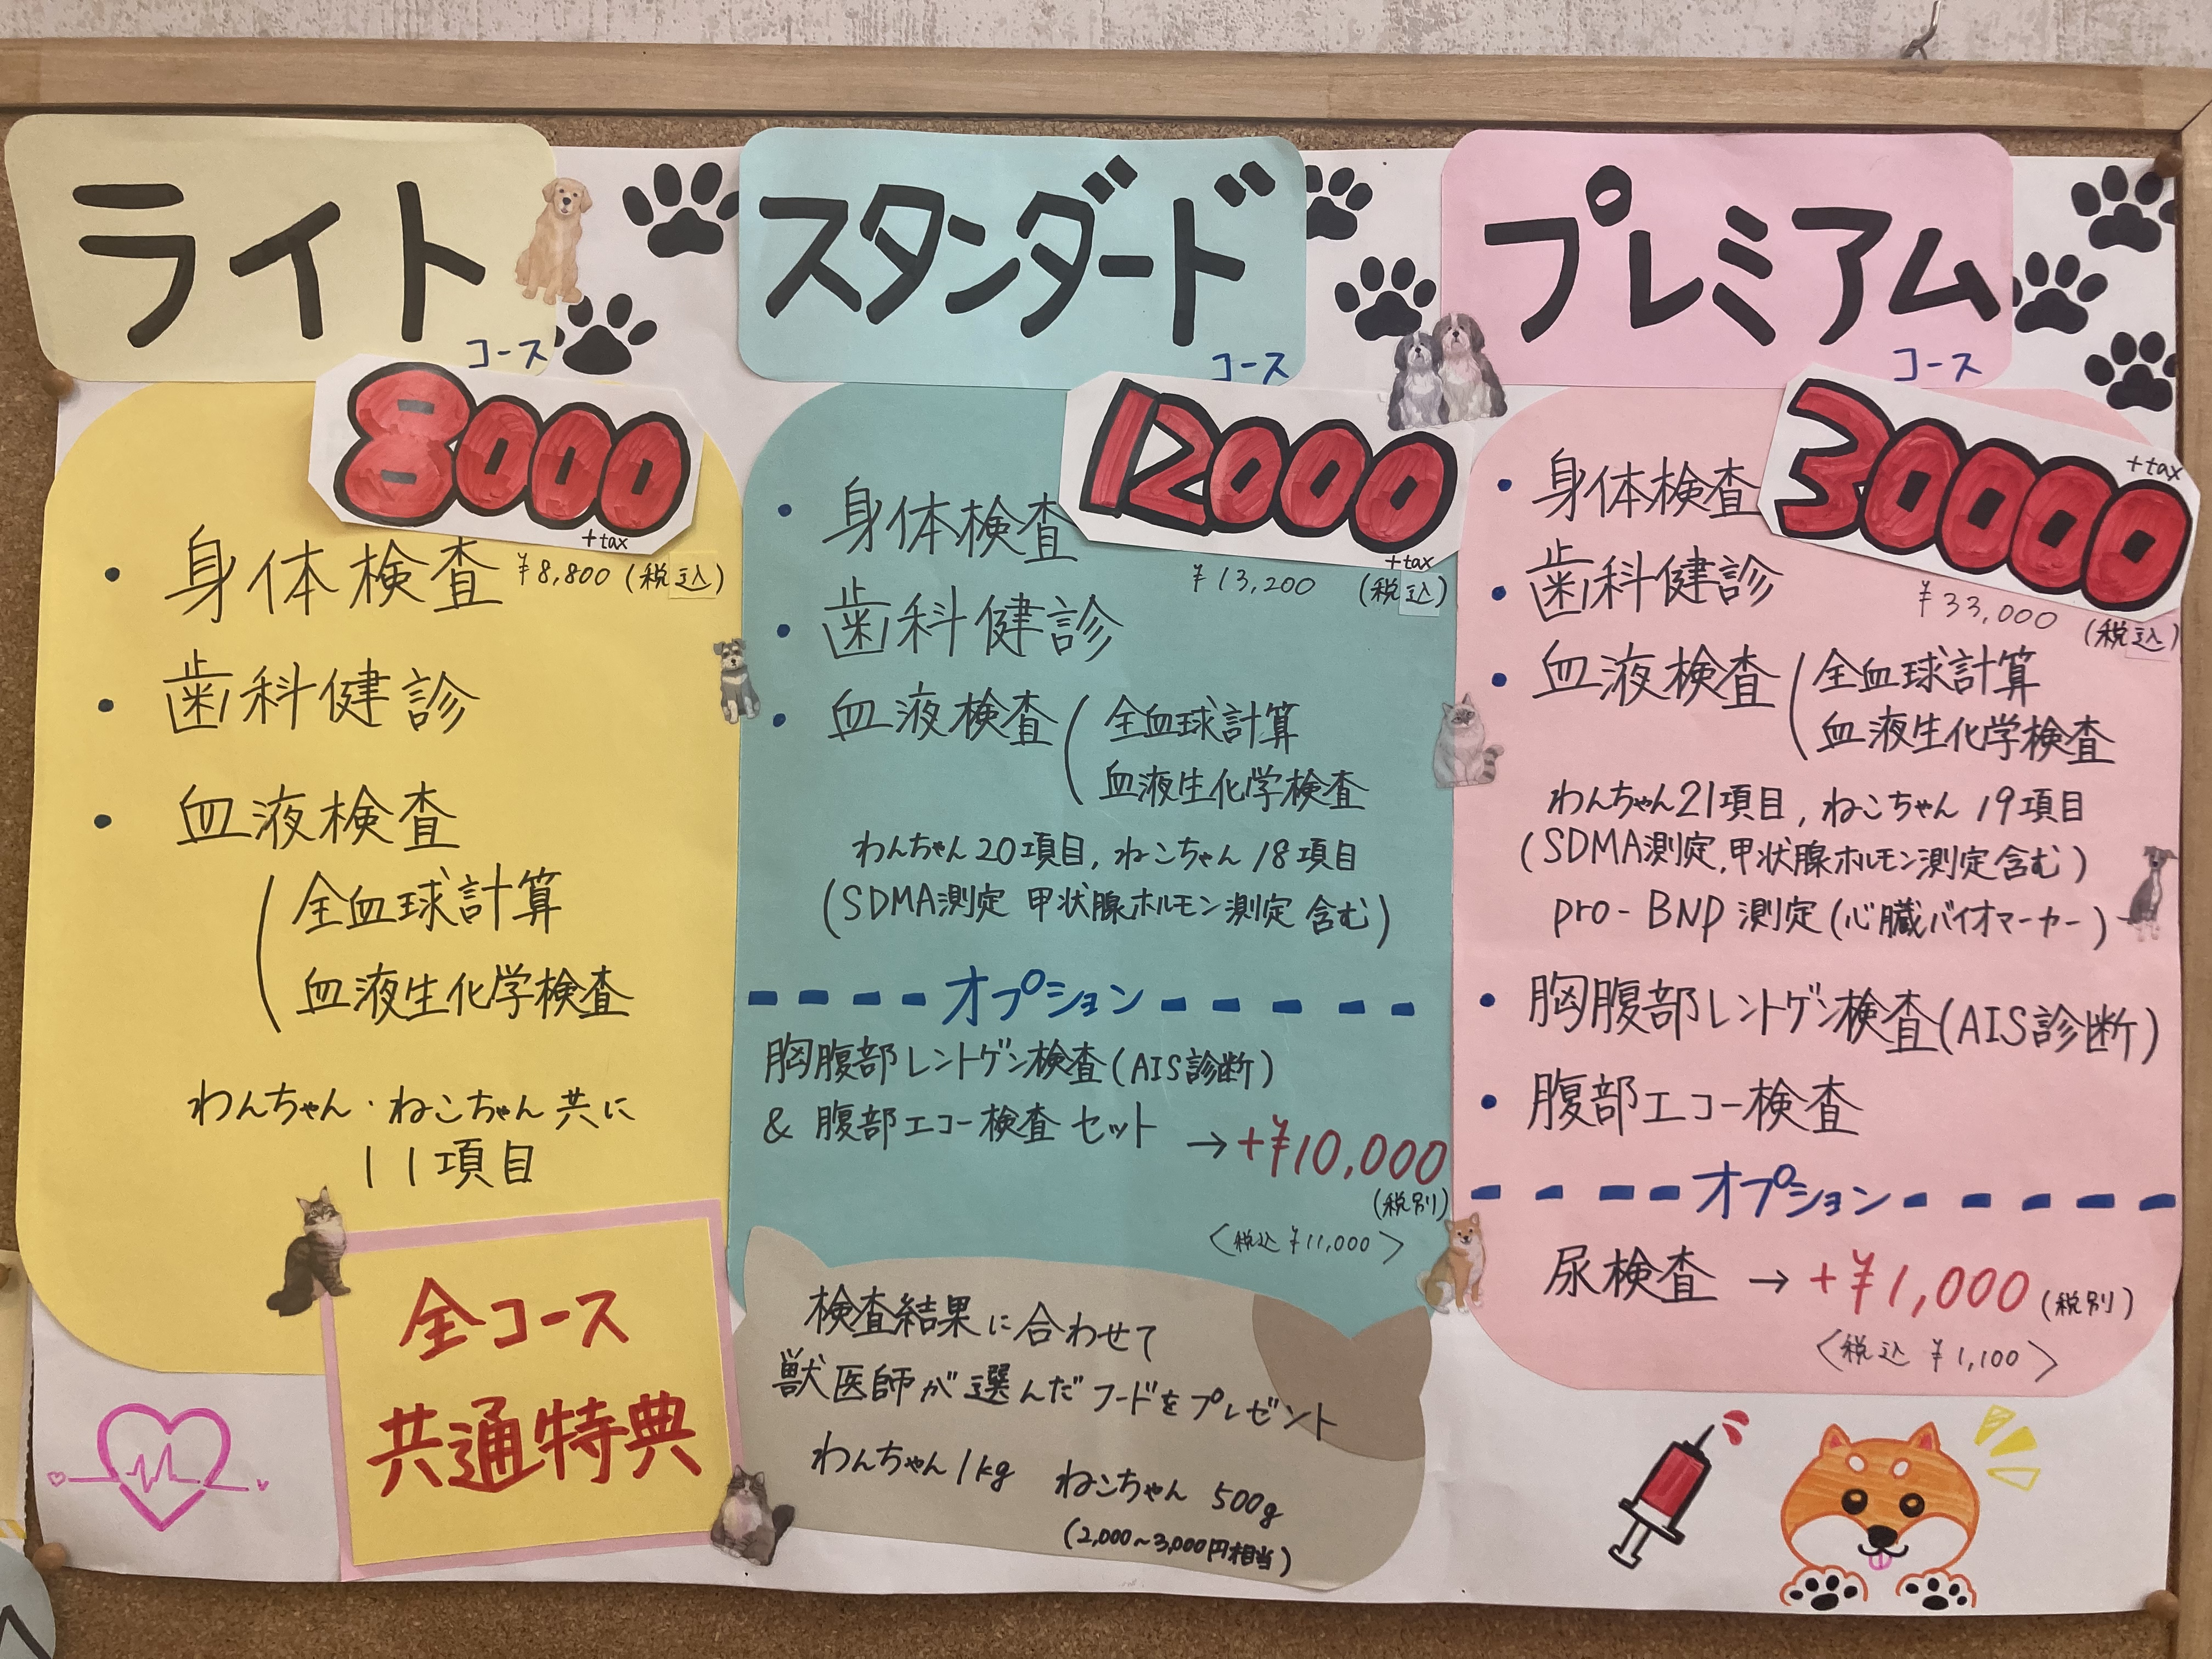 ライト
コース
8000
+tax
¥8,800 (税込)
・身体検査
・歯科健診
・血液検査
全血球計算
血液生化学検査
わんちゃん・ねこちゃん共に
11項目
スタンダード
コース
12000
+tax
¥13,200 (税込)
・身体検査
・歯科健診
・血液検査
全血球計算
血液生化学検査
わんちゃん20項目, ねこちゃん18項目
(SDMA測定 甲状腺ホルモン測定含む)
オプション
胸腹部レントゲン検査(AIS診断)
& 腹部エコー検査セット → +¥10,000
(税別)
〈税込 ¥11,000〉
プレミアム
コース
30000
+tax
¥33,000 (税込)
・身体検査
・歯科健診
・血液検査
全血球計算
血液生化学検査
わんちゃん21項目, ねこちゃん19項目
(SDMA測定, 甲状腺ホルモン測定含む)
pro-BNP 測定(心臓バイオマーカー)
・胸腹部レントゲン検査(AIS診断)
・腹部エコー検査
オプション
尿検査 → +¥1,000 (税別)
〈税込 ¥1,100〉
全コース
共通特典
検査結果に合わせて
獣医師が選んだフードをプレゼント
わんちゃん1kg ねこちゃん 500g
(2,000~3,000円相当)